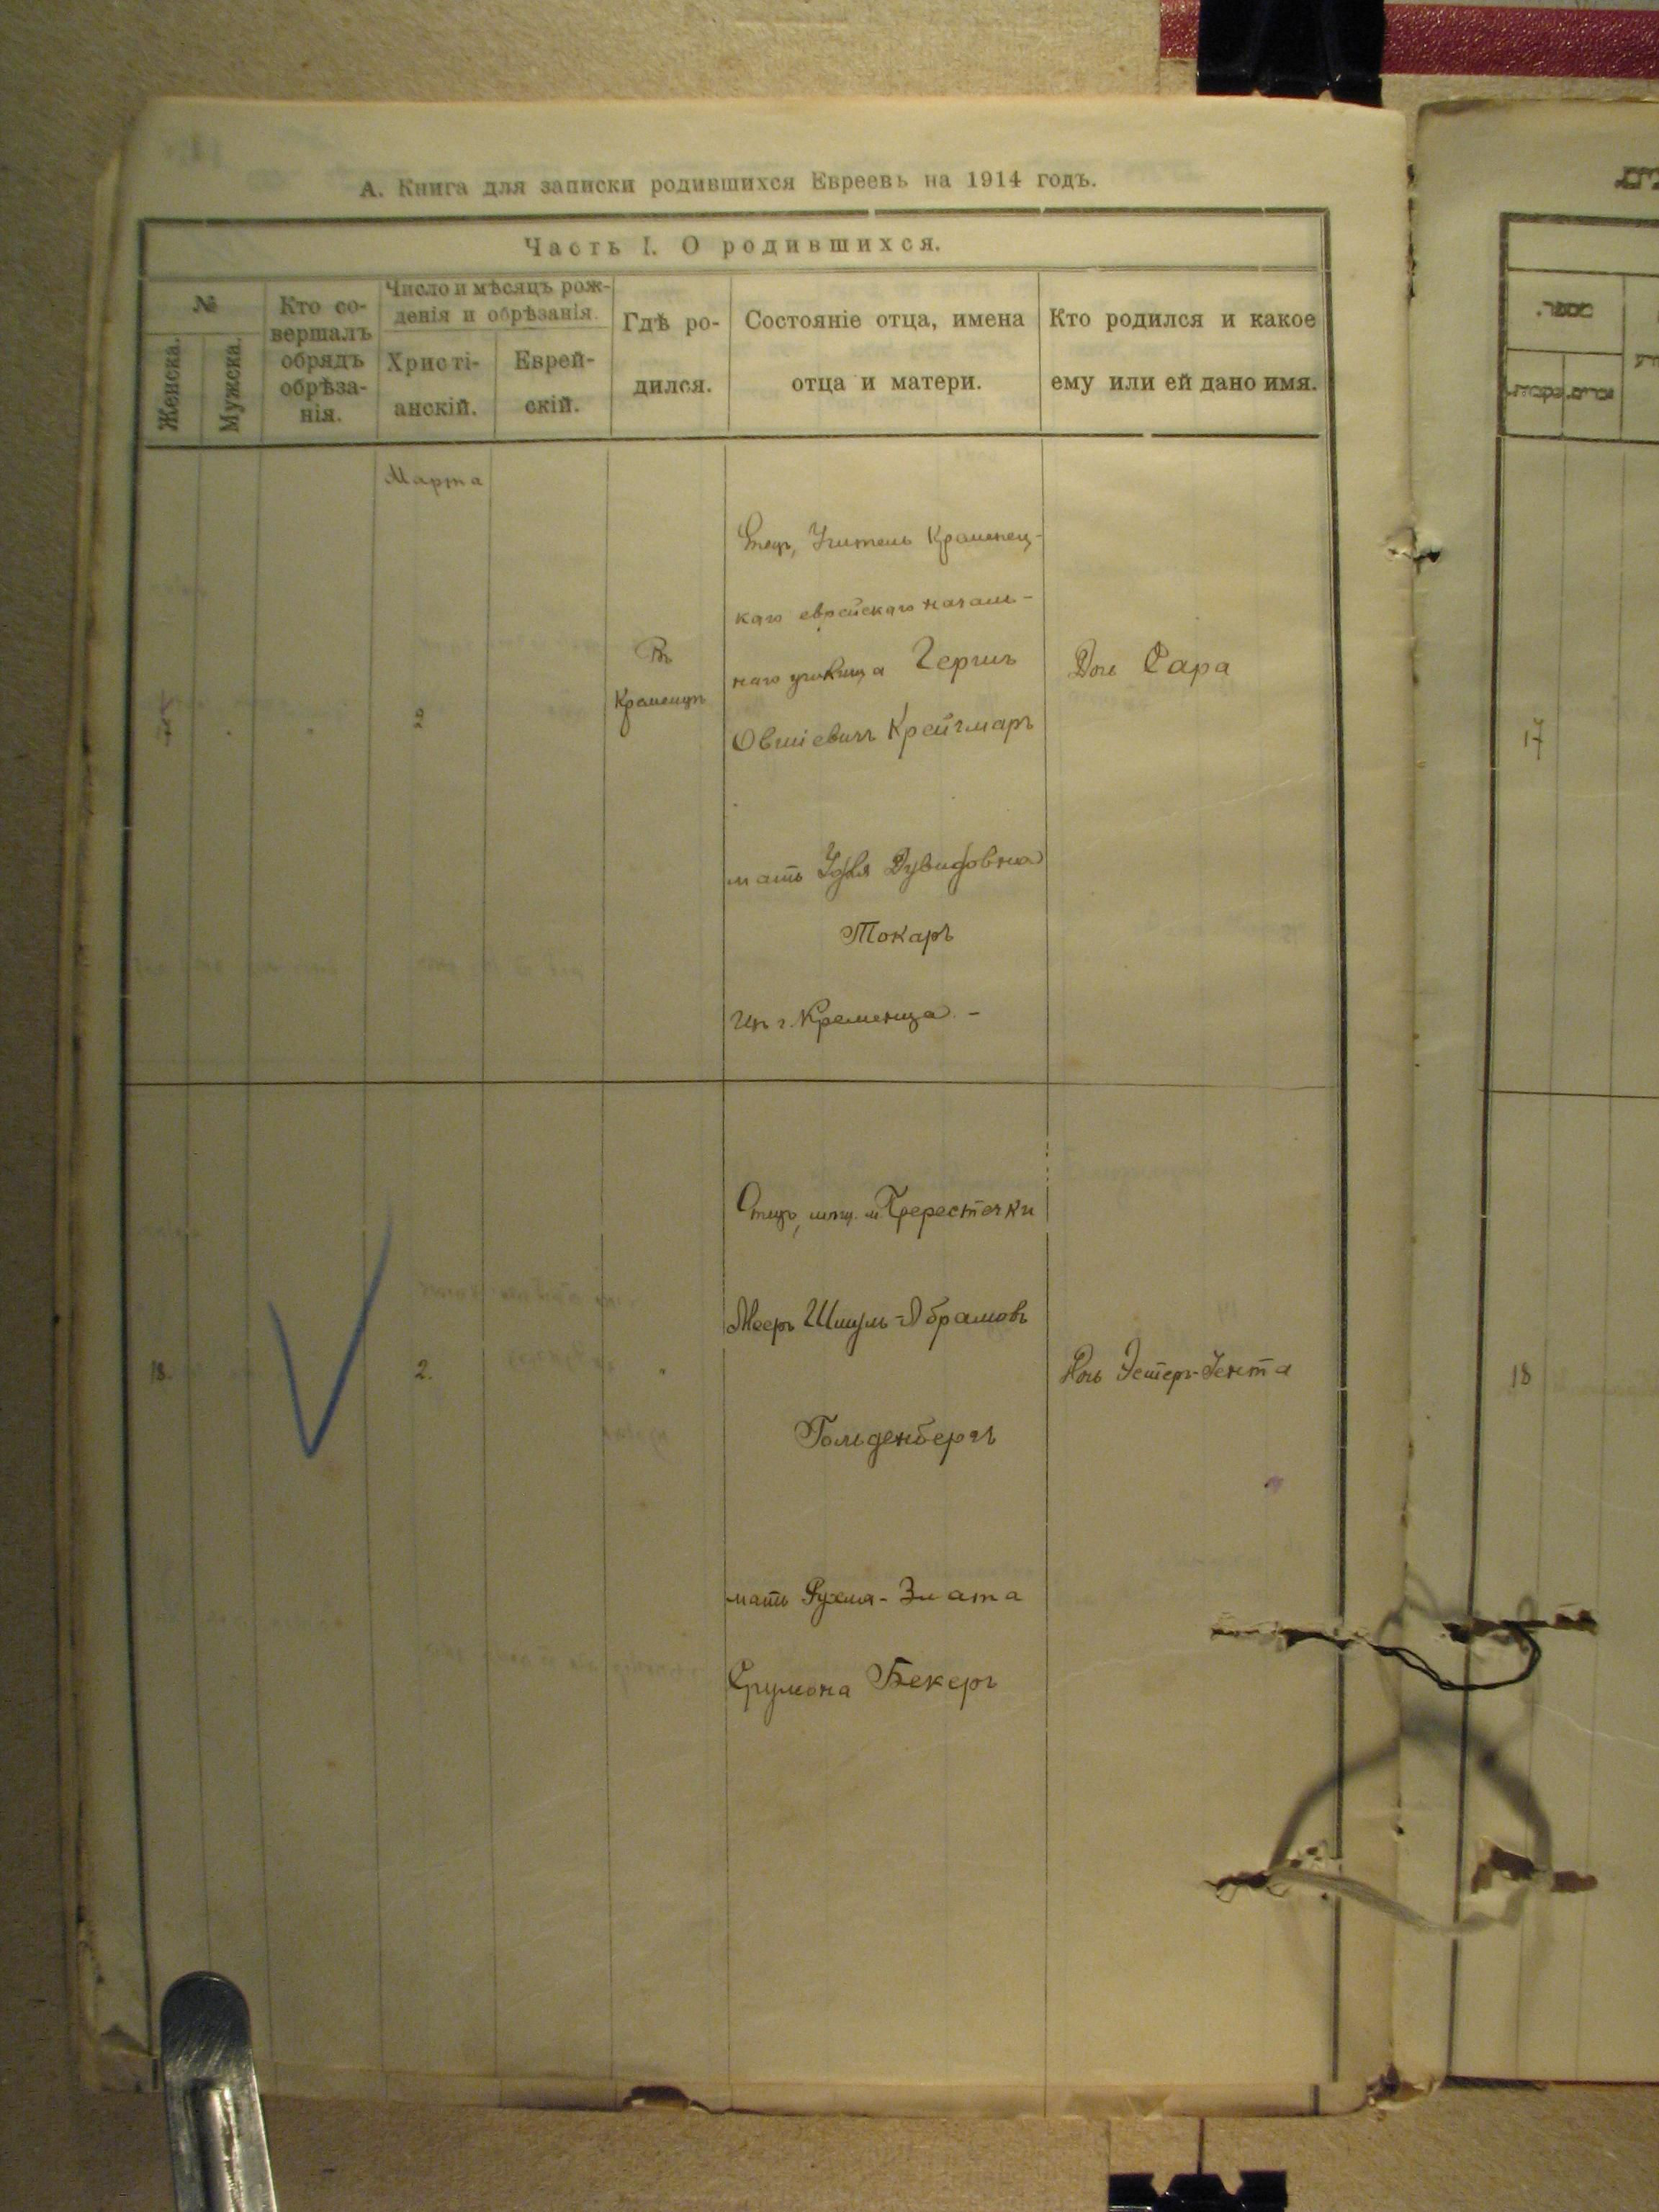 А. Книга для записки родившихся Евреевъ на 1914 годъ.
Часть I. О родившихся.
№
Женска.
Мужска.
Кто со-
вершалъ
обрядъ
обрѣза-
нія.
Число и мѣсяцъ рож-
денія и обрѣзанія.
Христі-
анскій.
Еврей-
скій.
Гдѣ ро-
дился.
Состояніе отца, имена
отца и матери.
Кто родился и какое
ему или ей дано имя.
Марта
17
2
Въ
Кременцѣ
Отец, Учитель Кременец-
каго еврейскаго началь-
наго училища Гершъ
Овшіевичъ Крейчмаръ
мать Удля Дувидовна
Токаръ
Из г. Кременца. -
Дочь Сара
17
18.
2.
Отецъ, мѣщ. м. Берестечки
Мееръ Шмуль-Абрамовъ
Гольденбергъ
мать Рухля-Злата
Срулевна Бекеръ
Дочь Эстеръ-Иента
18